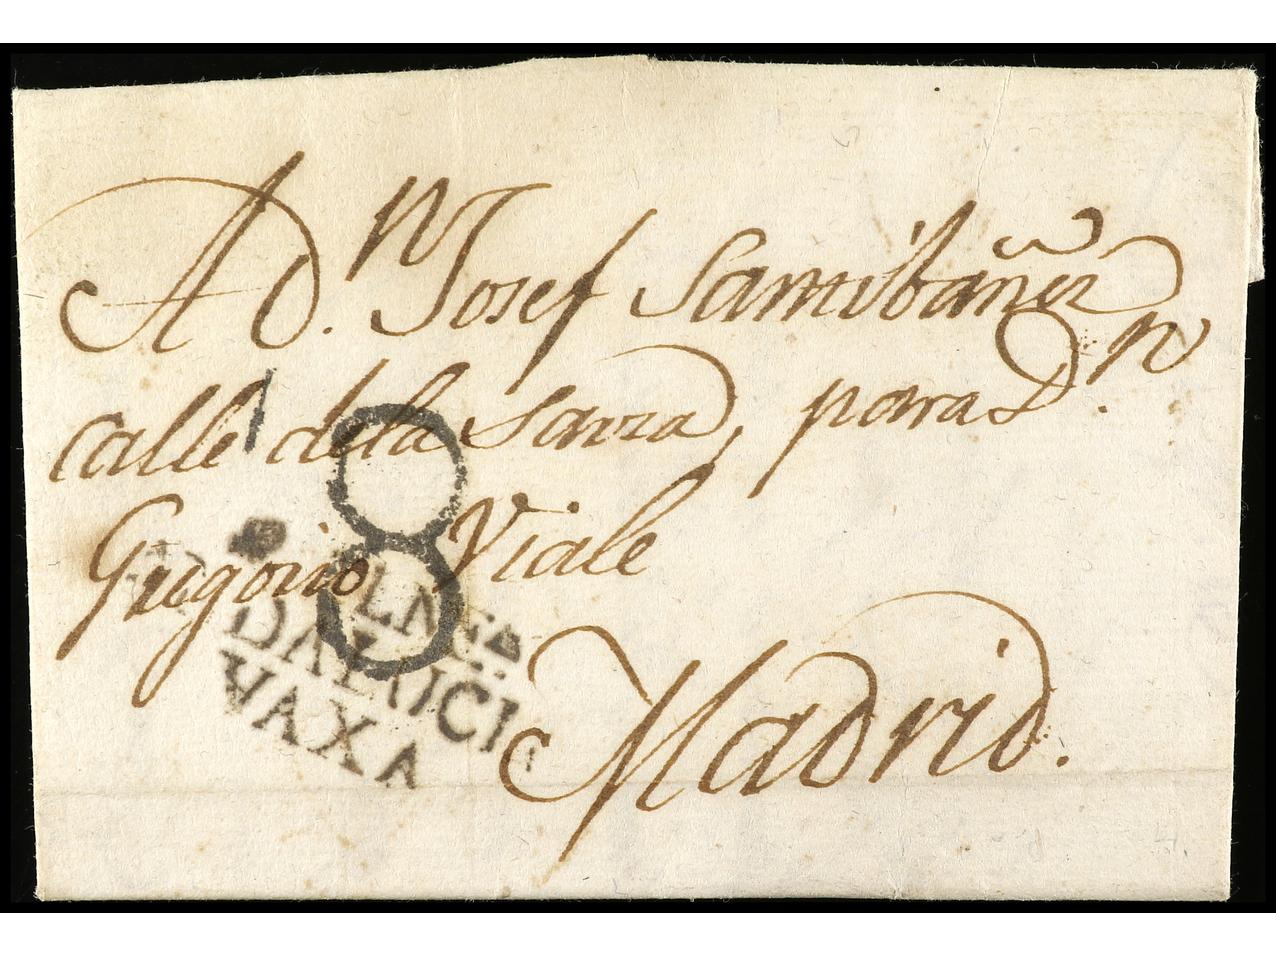 A D.n Josef Santibañez
calle de la Sarza, para D.n
Gregorio Viale
Madrid.
8
DALUCIA
VAXA